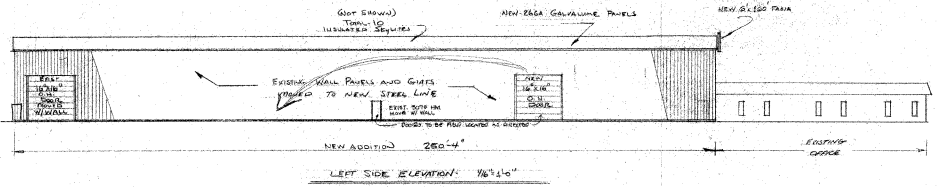 (NOT SHOWN)
TOTAL-10
INSULATED SKYLITES
NEW-26GA GALVALUME PANELS
EXIST
16'X16'
O.H.
DOOR
MOVED
W/WALL
EXISTING WALL PANELS AND GIRTS
MOVED TO NEW STEEL LINE
NEW
16'X16'
O.H.
DOOR
EXIST. 3070 HM
MOVE W/ WALL
DOORS TO BE FIELD LOCATED AS DIRECTED
NEW ADDITION 250'-4"
EXISTING
OFFICE
LEFT SIDE ELEVATION: 1/16"=1'-0"